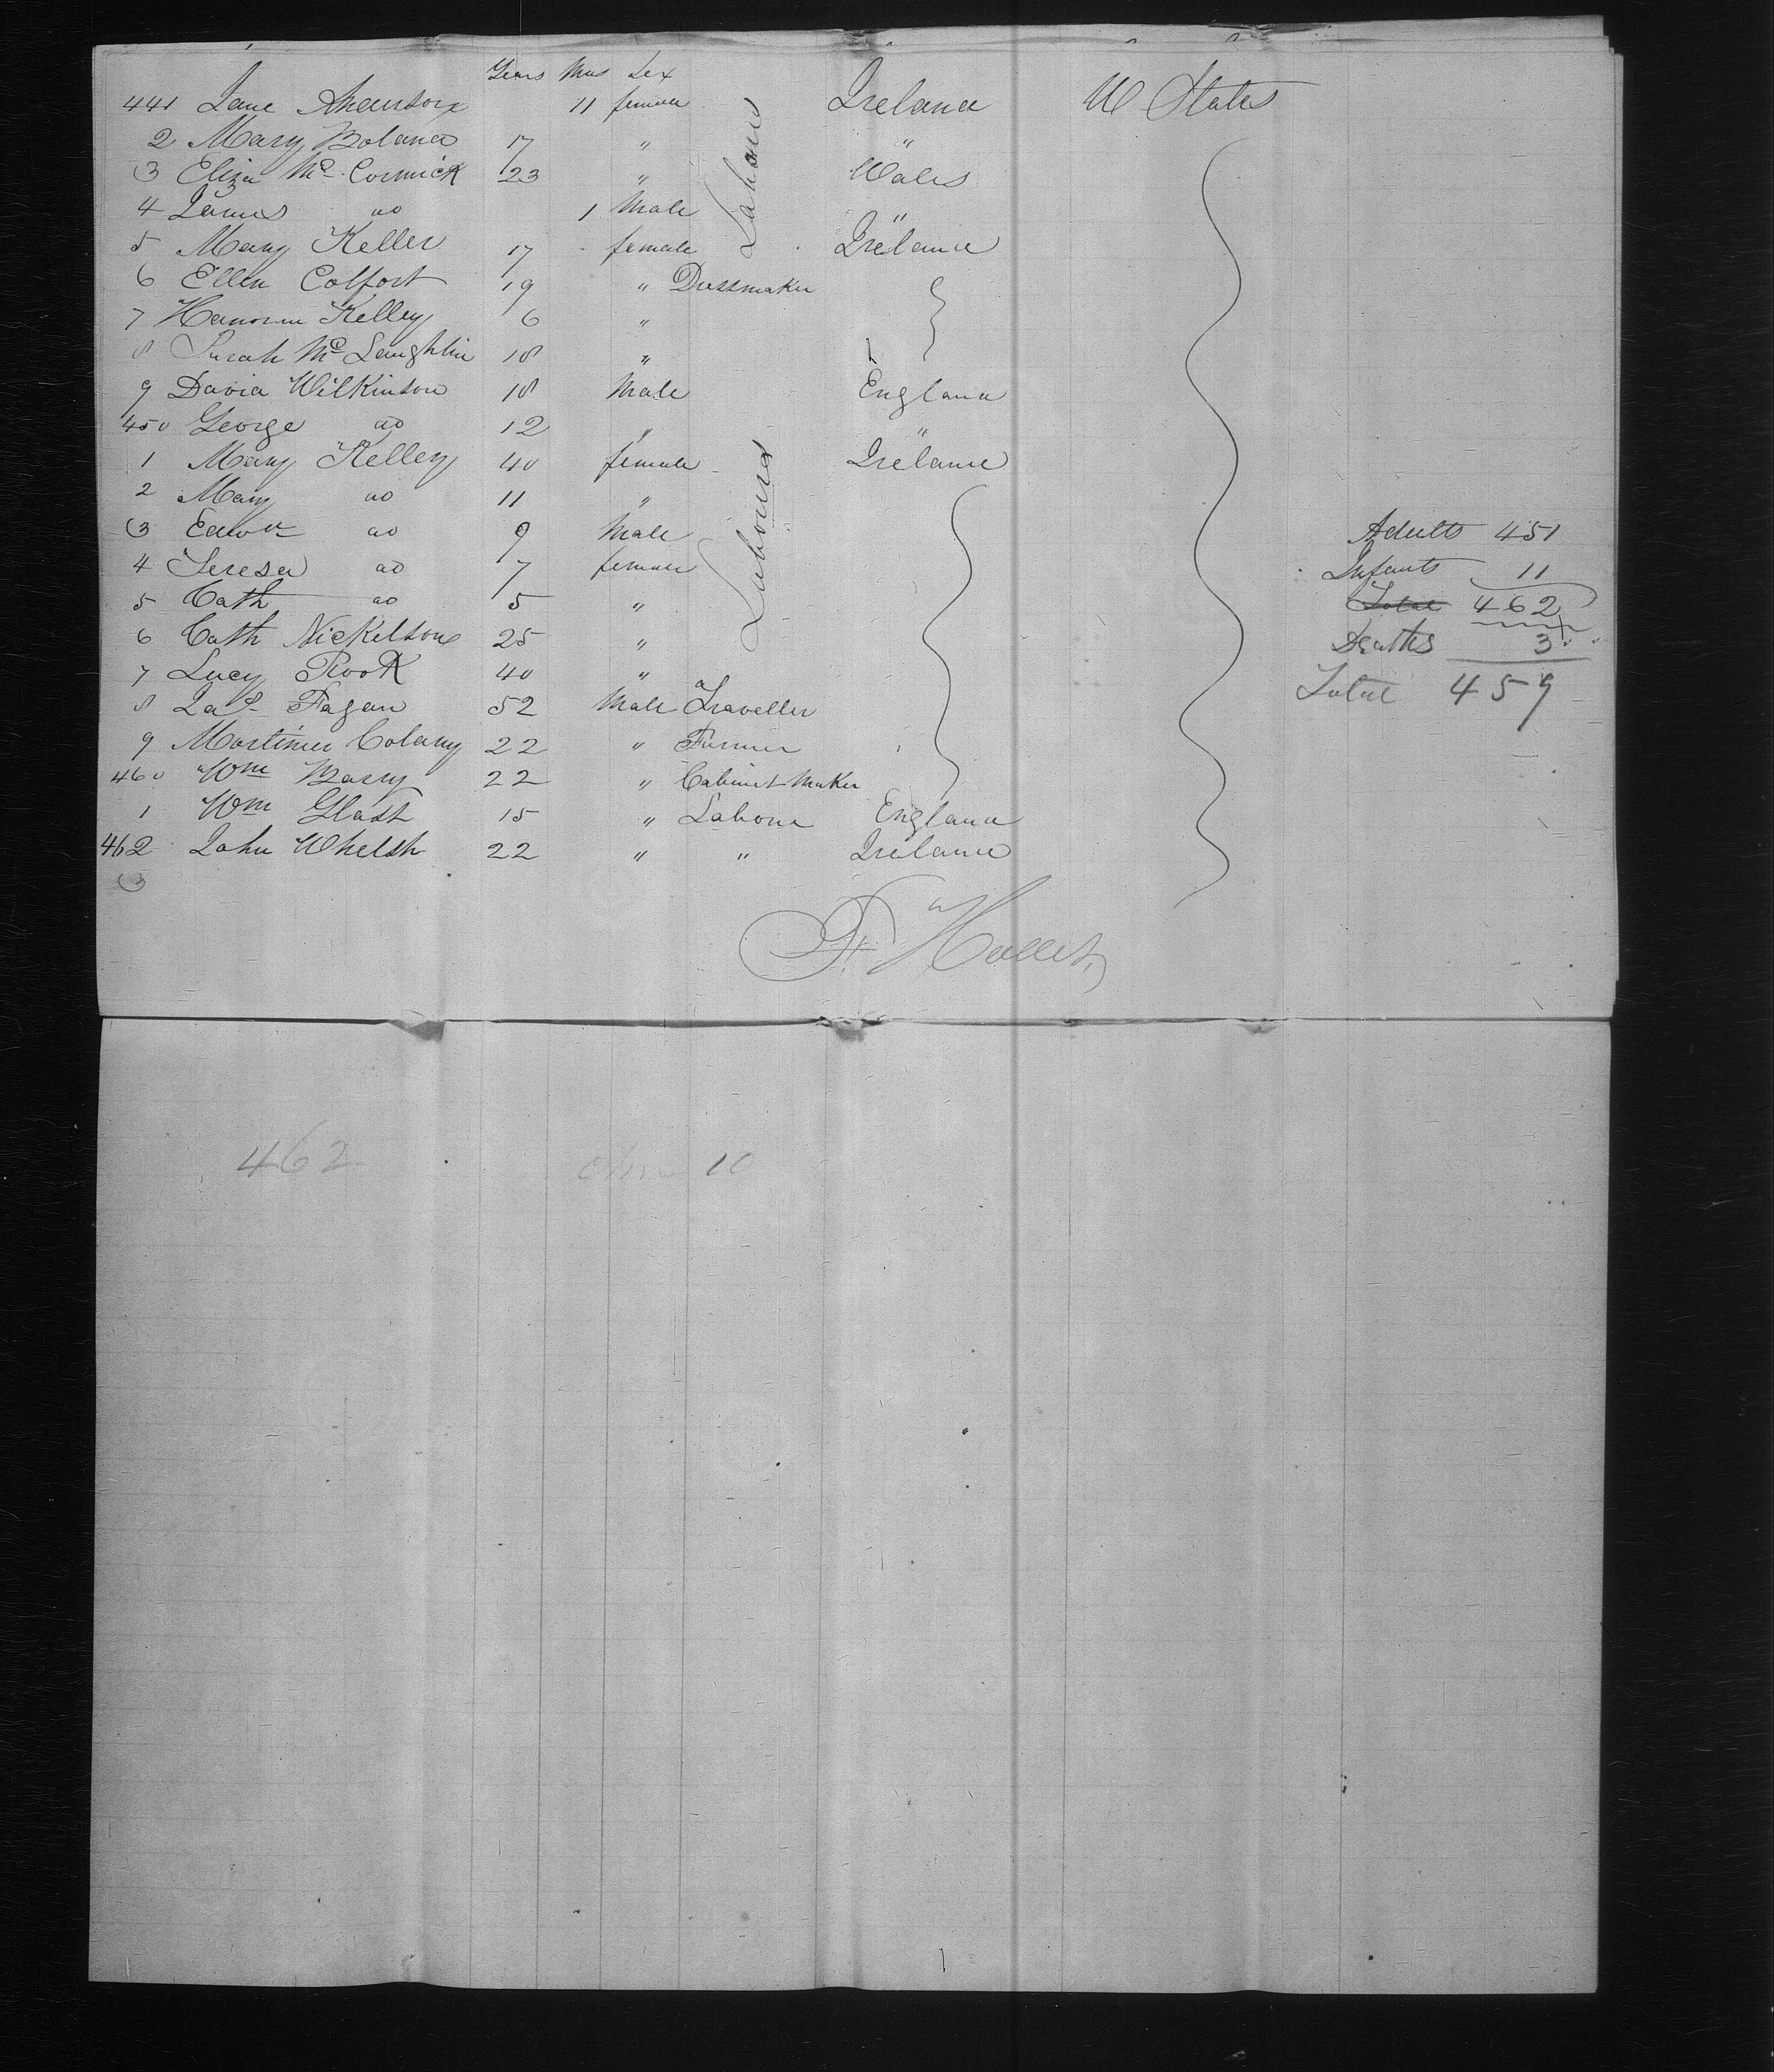 Years Mos Sex
441 Jane Anderson 11 female Ireland U States
2 Mary Boland 17 " "
3 Eliza Mc Cormick 23 " Wales
4 James do 1 Male "
5 Mary Keller 17 female Ireland
Labourers
6 Ellen Colfort 19 " Dressmaker
7 Hanorin Kelley 6 "
8 Sarah Mc Laughlin 18 "
9 David Wilkinson 18 Male England
450 George do 12 " "
1 Mary Kelley 40 female Ireland
2 Mary do 11 "
3 Edwd do 9 Male
4 Teresa do 7 female
5 Cath do 5 "
6 Cath Nickelson 25 "
Labourers
7 Lucy Rook 40 "
8 Jas Fagan 52 Male Traveller
9 Mortimer Colany 22 " Farmer
460 Wm Barry 22 " Cabinet Maker
1 Wm Glast 15 " Labour England
462 John Whelsh 22 " " Ireland
3
Adults 451
Infants 11
Total 462
Deaths 3
Total 459
F. Hallet
462 10